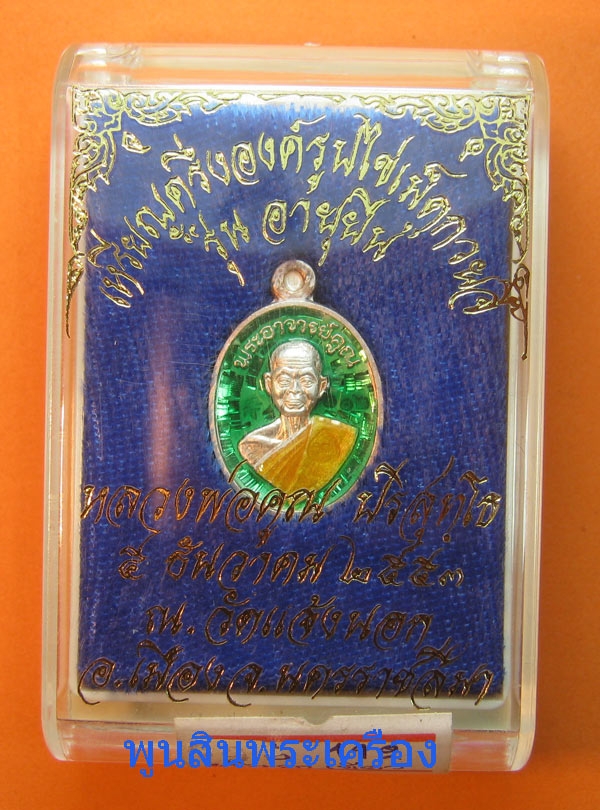 เหรียญครึ่งองค์รูปไข่เม็ดกวยจี๊
รุ่น อายุยืน
พระอาจารย์คูณ
หลวงพ่อคูณ ปริสุทฺโธ
๕ ธันวาคม ๒๕๕๓
ณ. วัดแจ้งนอก
อ.เมือง จ.นครราชสีมา
พูนสินพระเครือง